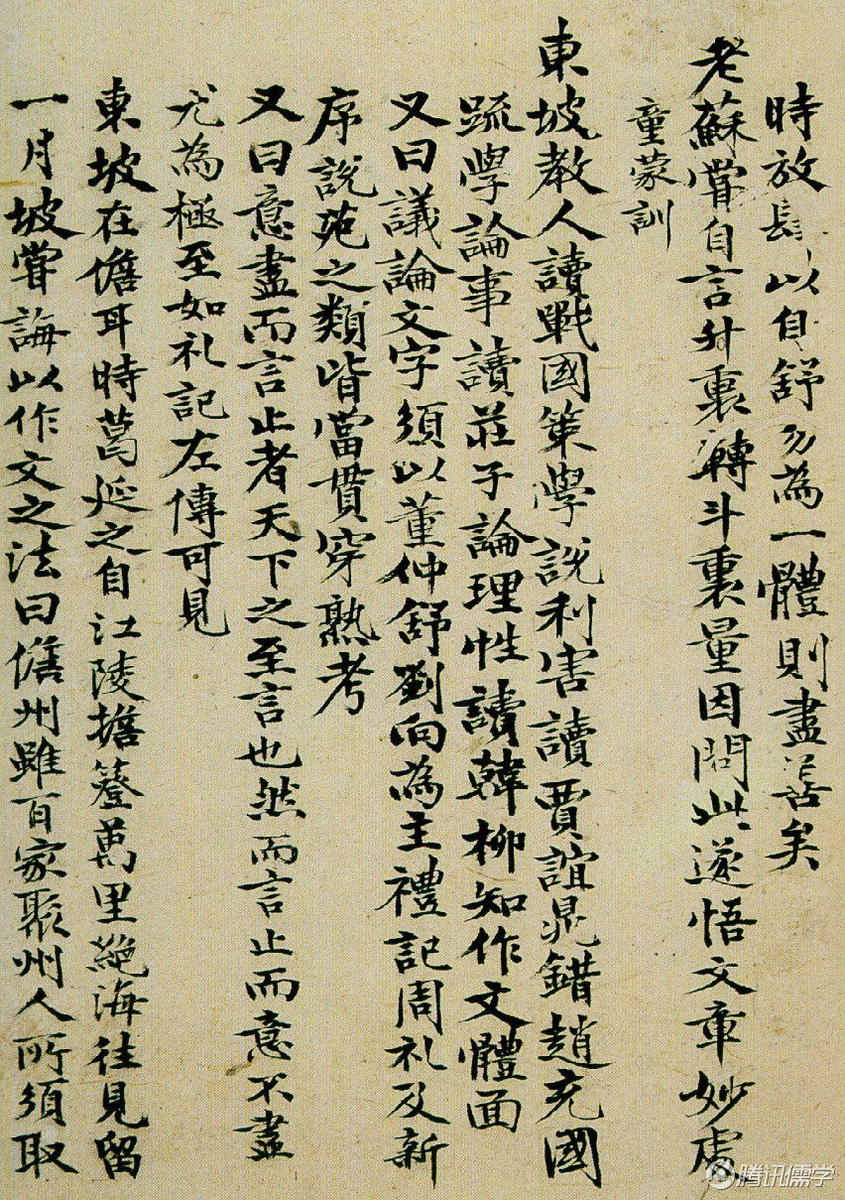 時放肆以自舒勿為一體則盡善矣
老蘇嘗自言升裏轉斗裏量因聞此遂悟文章妙處
童蒙訓
東坡教人讀戰國策學說利害讀賈誼晁錯趙充國
疏學論事讀莊子論理性讀韓柳知作文體面
又曰議論文字須以董仲舒劉向為主禮記周礼及新
序說苑之類皆當貫穿熟考
又曰意盡而言止者天下之至言也然而言止而意不盡
尤為極至如礼記左傳可見
東坡在儋耳時葛延之自江陵擔簦萬里絕海往見留
一月坡嘗誨以作文之法曰儋州雖百家聚州人所須取
腾讯儒学